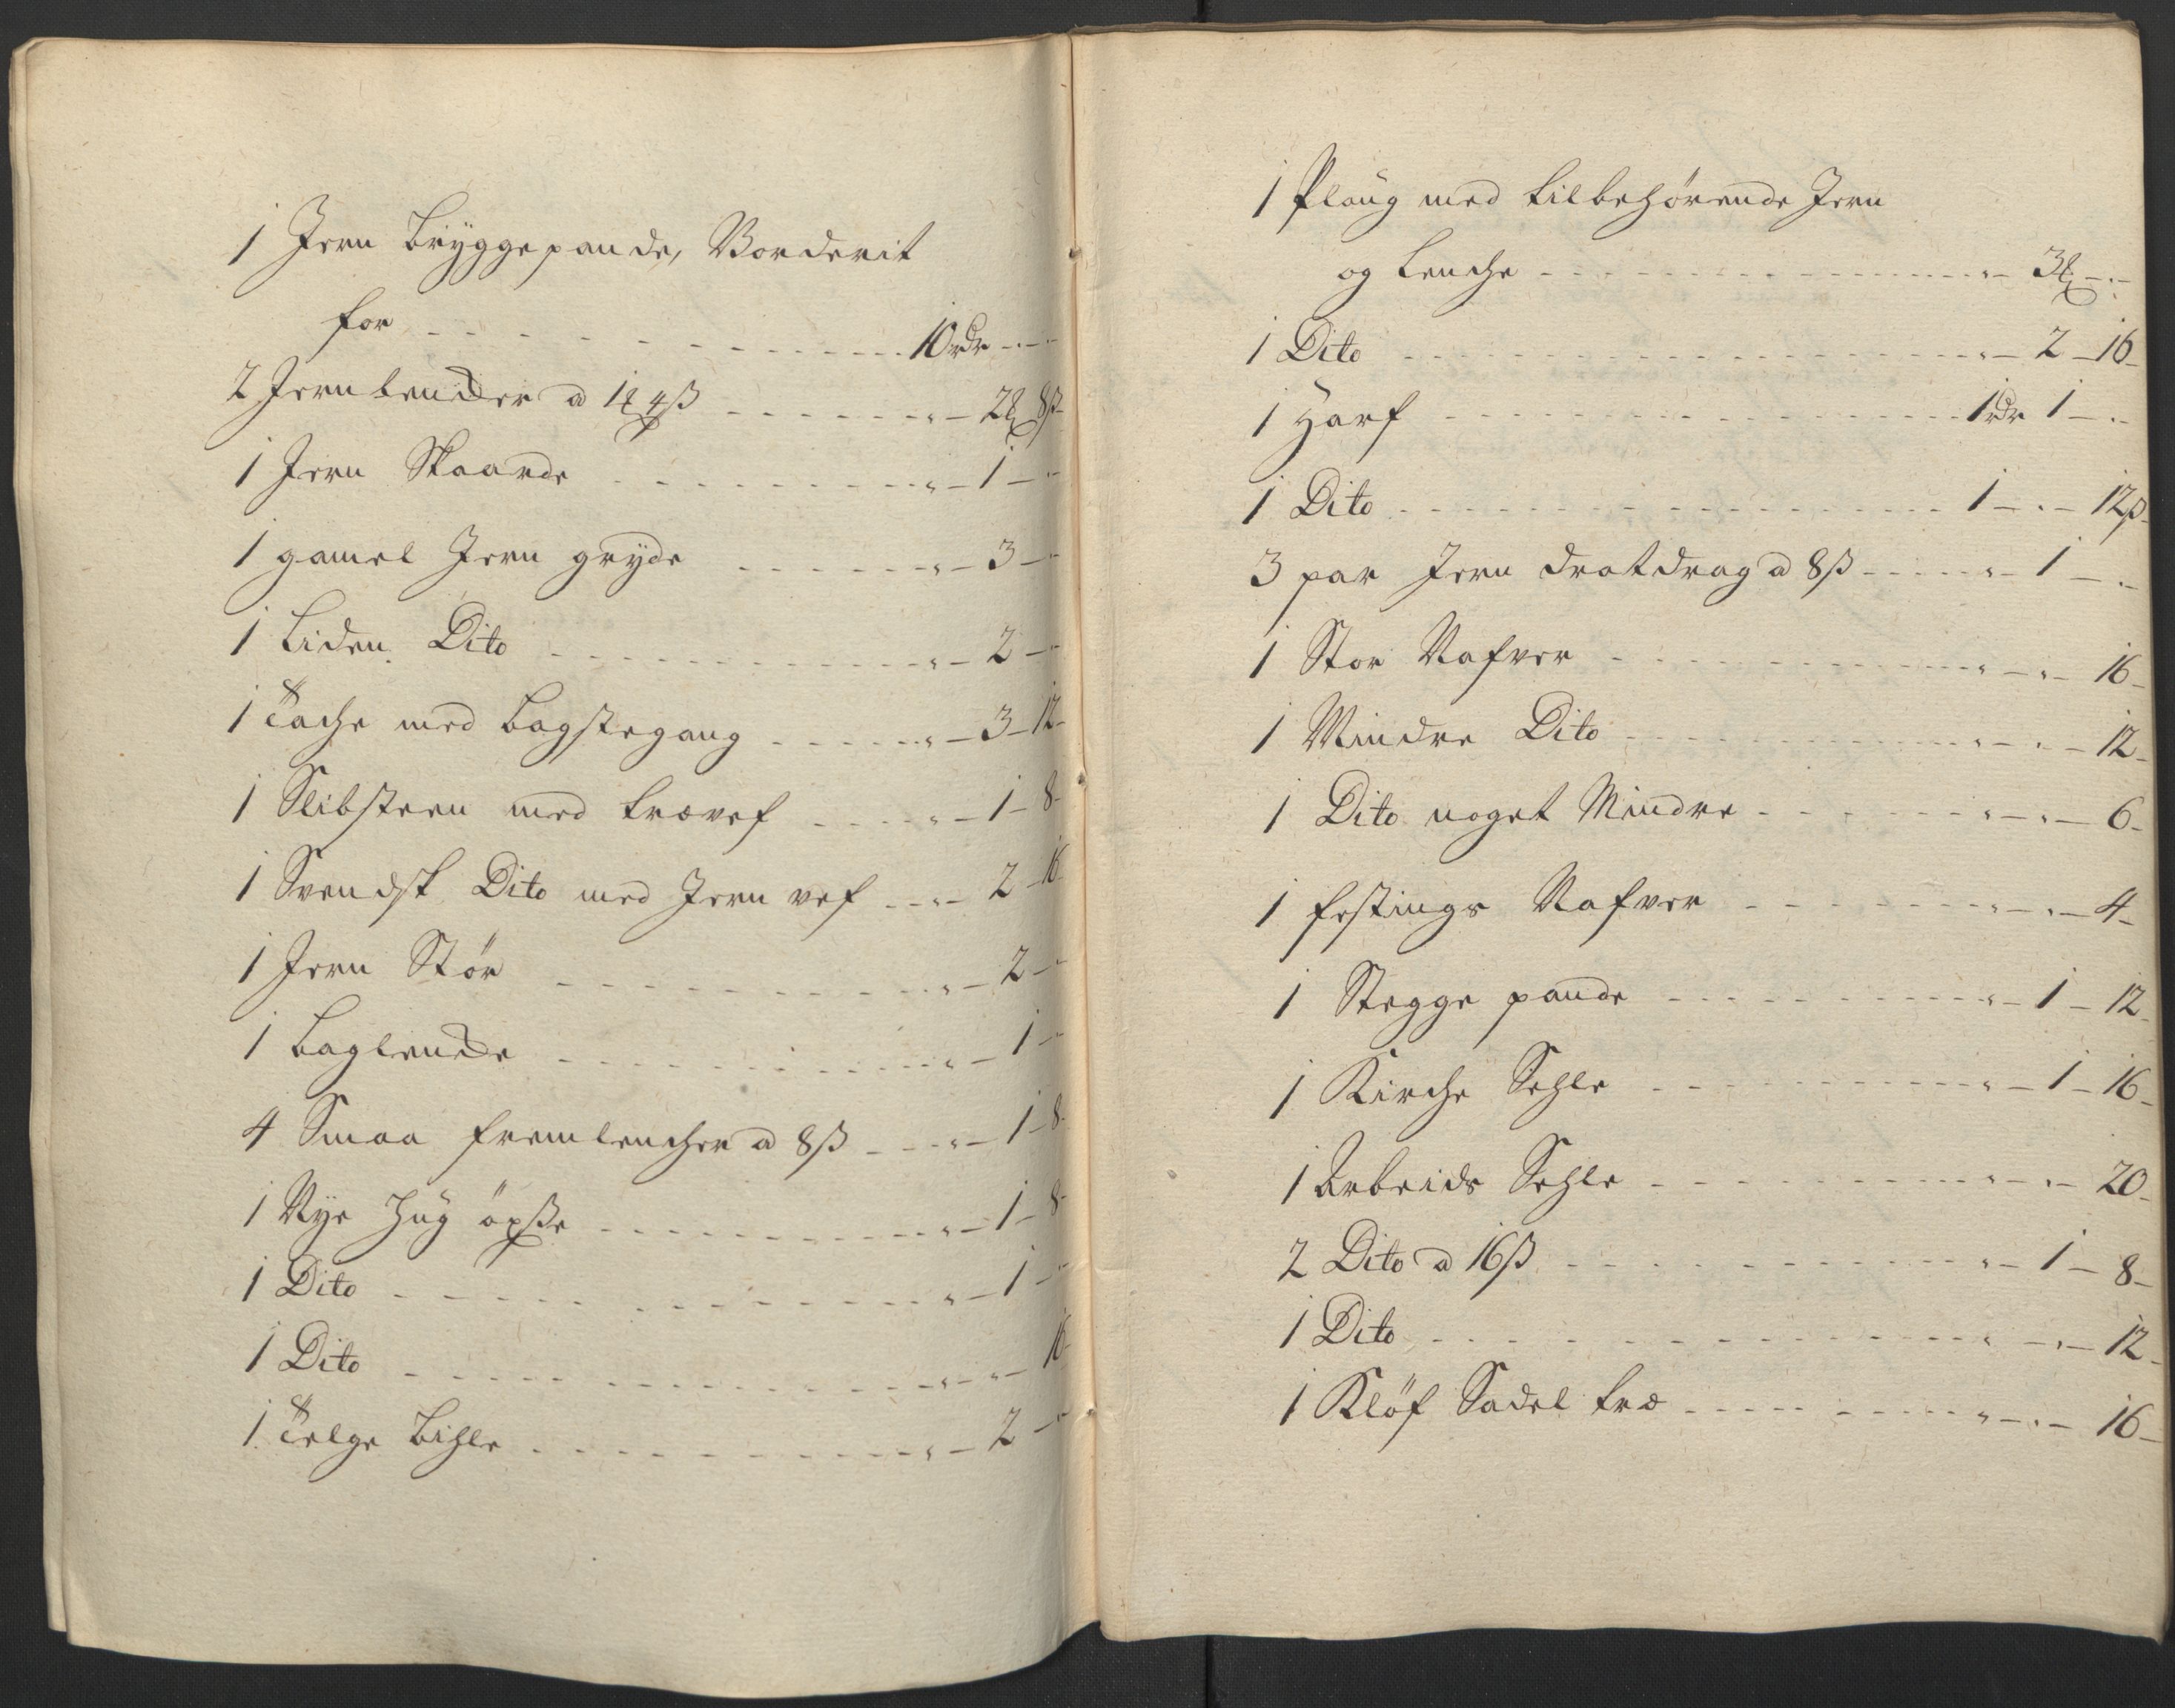 1 Jern bryggepande, Vorderit
for - - - 10 rdr - . -
2 Jern lender a 1 ₰ 4 ß - - - „ - 2 ₰ 8 ß
1 Jern Skaande - - - „ - 1 - „
1 gamel Jern gryde - - - „ - 3 - „
1 Liden Dito - - - „ - 2 - „
1 Tache med bagstegang - - - „ - 3 - 12 -
1 Slibsteen med trævef - - - „ - 1 - 8 -
1 Svendsk Dito med Jern vef - - „ - 2 - 16
1 Jern Stør - - - „ - 2 - „
1 baglende - - - „ - 1 - „
4 Smaa fremlencher a 8 ß - - - „ - 1 - 8 -
1 Nye hug öxse - - - „ - 1 - 8 -
1 Dito - - - „ - 1 - „
1 Dito - - - „ - „ - 16
1 Telge bihle - - - „ - 2 - „
1 Ploug med tilbehørende Jern
og lenche - - - „ - 3 ₰ - . -
1 Dito - - - „ - 2 - 16 -
1 Harf - - - 1 rdr 1 - . -
1 Dito - - - 1 - . - 12 ß
3 par Jern dratdrag a 8 ß - - - „ - 1 - . -
1 Stor Nafver - - - „ - „ - 16 -
1 Mindre Dito - - - „ - „ - 12 -
1 Dito noget Mindre - - - „ - „ - 6 -
1 festings Nafver - - - „ - „ - 4 -
1 Stegge pande - - - „ - 1 - 12 -
1 Kirche Sehle - - - „ - 1 - 16 -
1 Arbeids Sehle - - - „ - „ - 20 -
2 Dito a 16 ß - - - „ - 1 - 8 -
1 Dito - - - „ - „ - 12 -
1 Kløf Sadel træ - - - „ - „ - 16 -